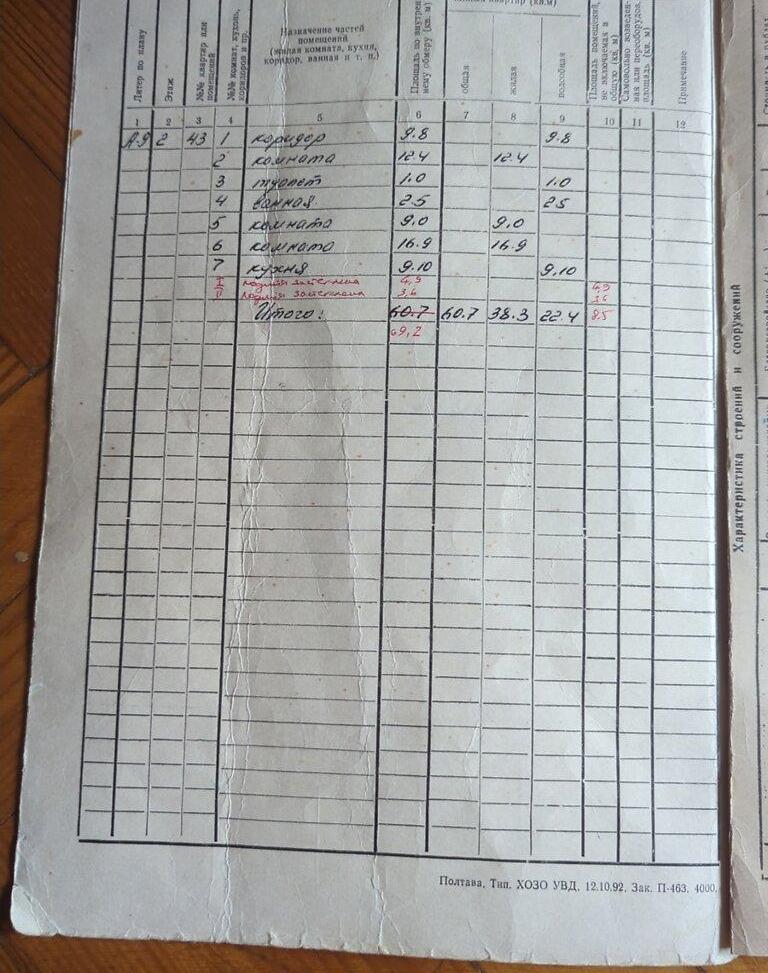 Литер по плану
Этаж
№№ квартир или помещений
№№ комнат, кухонь, коридоров и пр.
Назначение частей
помещений
(жилая комната, кухня,
коридор, ванная и т. п.)
Площадь по внутреннему обмеру (кв. м)
квартир (кв.м)
общая
жилая
подсобная
Площадь помещений, не включаемая в общую (кв. м)
Самовольно возведенная или переоборудов. площадь (кв. м)
Примечание
1 2 3 4 5 6 7 8 9 10 11 12
А9 2 43 1 коридор 9.8 9.8
2 комната 12.4 12.4
3 туалет 1.0 1.0
4 ванная 2.5 2.5
5 комната 9.0 9.0
6 комната 16.9 16.9
7 кухня 9.10 9.10
I лоджия застеклена 4,9 4,9
II лоджия застеклена 3,6 3,6
Итого: 60.7 60.7 38.3 22.4 8.5
69,2
Полтава. Тип. ХОЗО УВД. 12.10.92. Зак. П-463. 4000.
Характеристика строений и сооружений